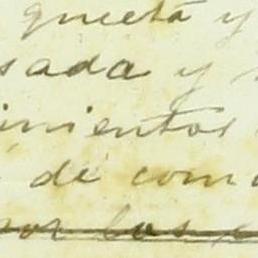 quieta y
sada y
imientos
de com
por los